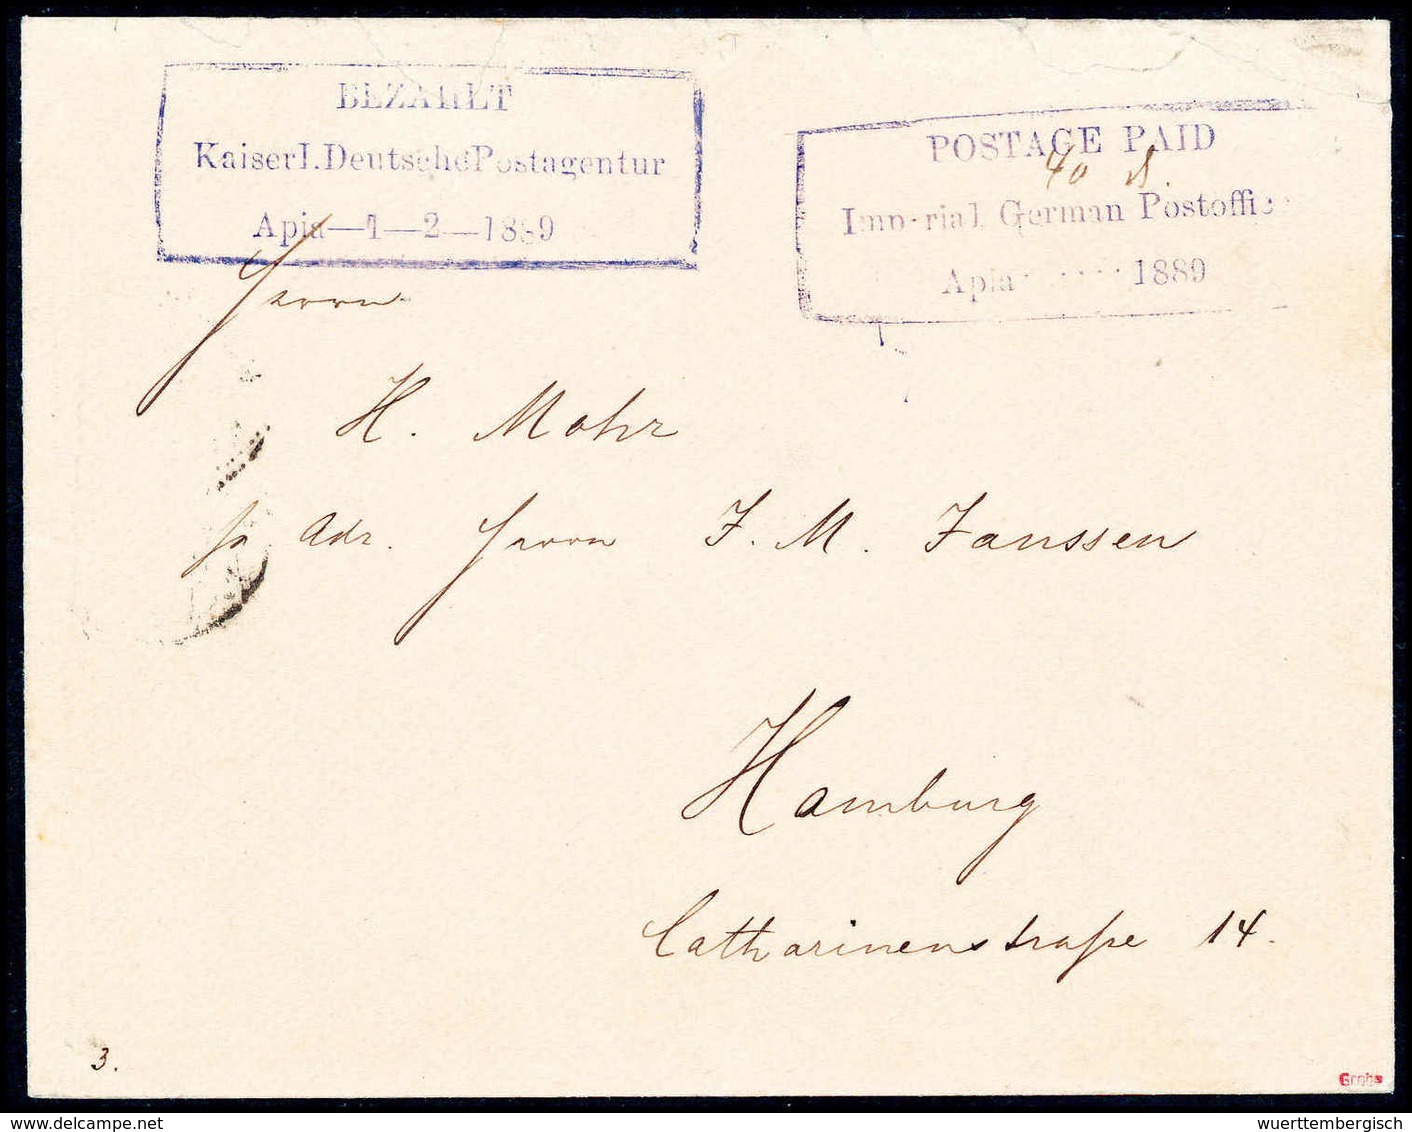 BEZAHLT
Kaiserl. Deutsche Postagentur
Apia—1—2—1889
POSTAGE PAID
40
Imperial German Postoffice
Apia 1889
Herrn
H. Mohr
Adr. Herrn J. M. Janssen
Hamburg
Catharinenstraße 14.
3.
wuerttembergisch